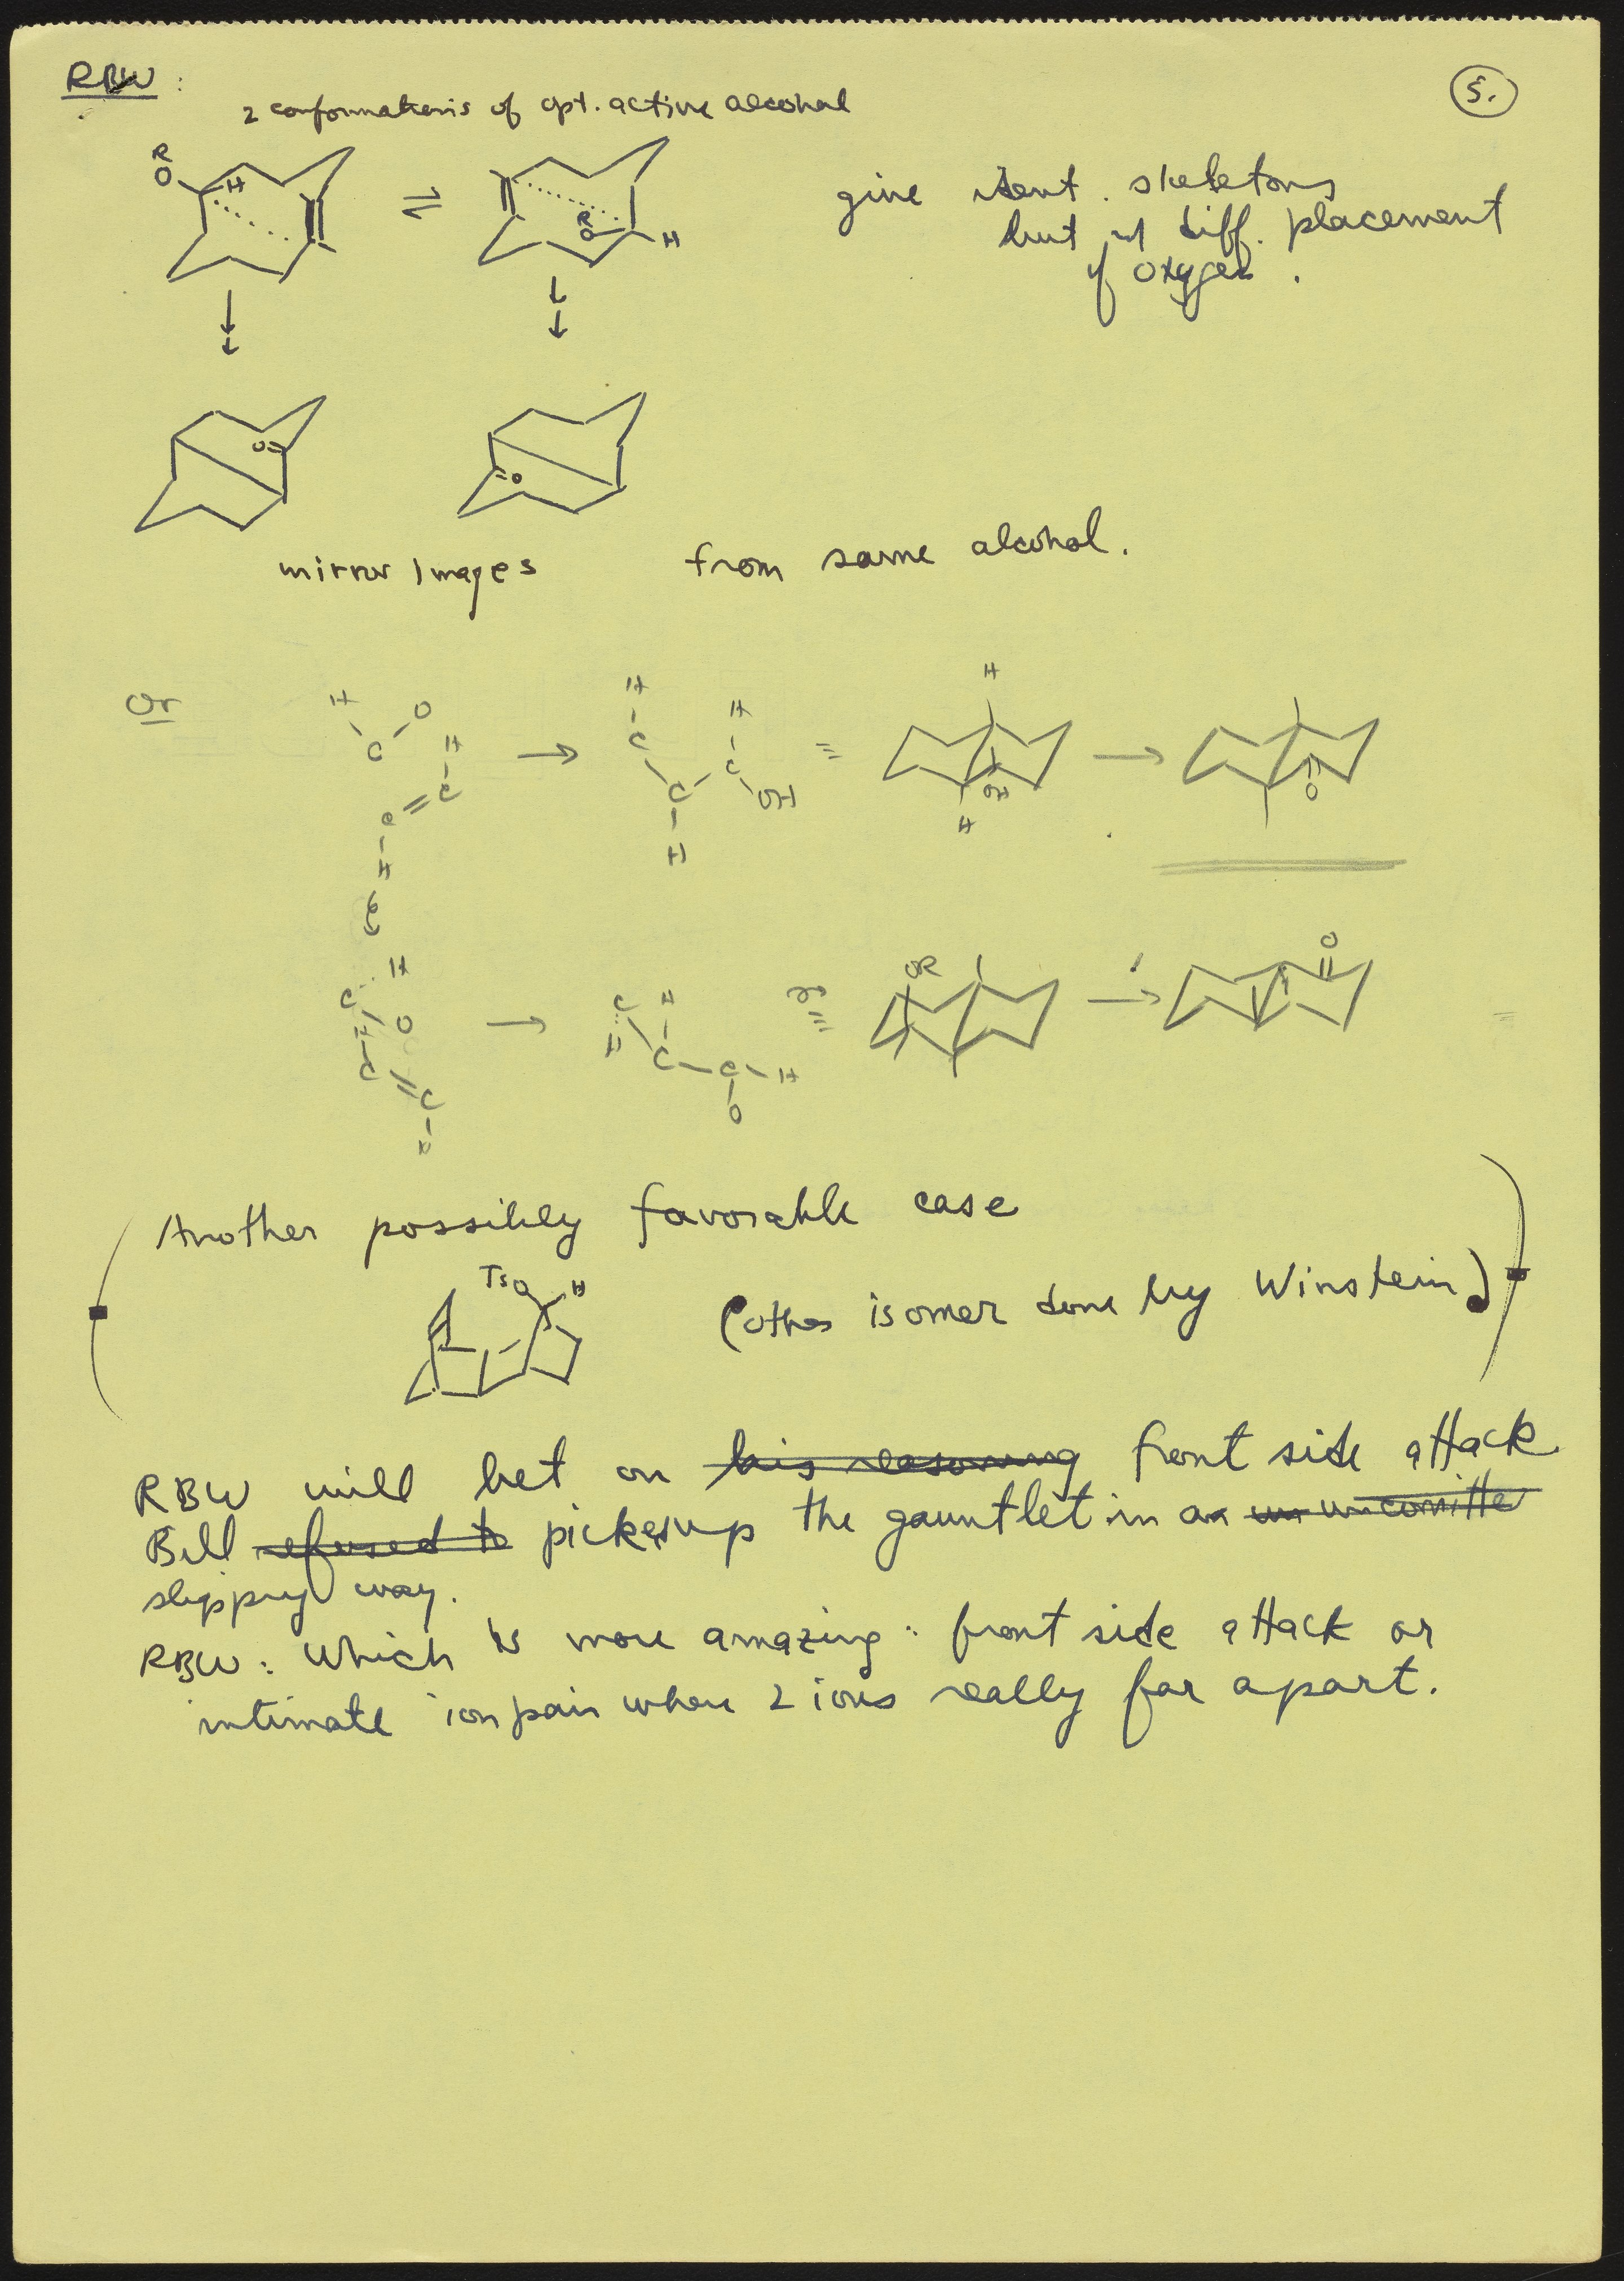 RBW :
5.
2 conformations of opt. active alcohol
R
O
H
R
O
H
give ident. skeletons
but diff. placement
of oxygen.
O
O
mirror images from same alcohol.
Or
H O
C H
C
C
H
H
C H
C C
OH
H
H
OH
H
O
H
C O
H
C
C
H
C H
H C C H
O
OR
!
O
Another possibly favorable case
TsO H
(other isomer done by Winstein)
RBW will bet on his reasoning front side attack
Bill refused to picks up the gauntlet in a un uncomitte
slippry way.
RBW: Which is more amazing: front side attack or
intimate ion pair where 2 ions really far apart.